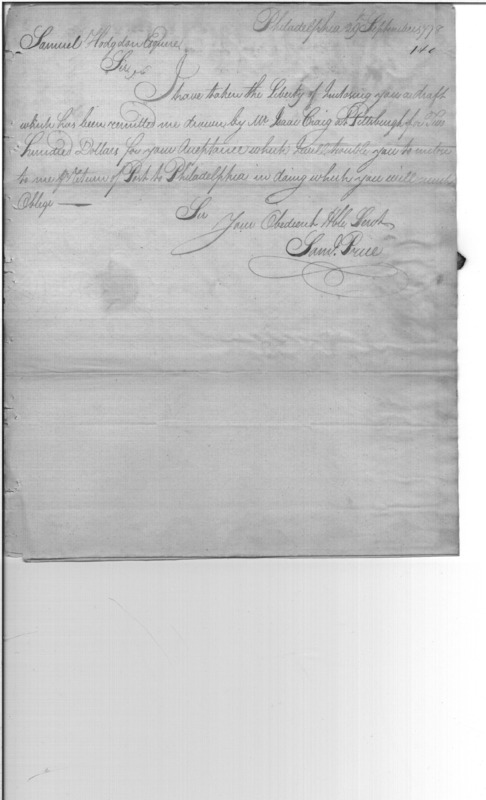 Philadelphia 29 September 1798
140
Samuel Hodgdon Esquire
Sir,
I have taken the Liberty of Inclosing you a draft
which has been remitted me drawn by Mr. Isaac Craig at Pittsburgh for Two
Hundred Dollars for your Acceptance which I will trouble you to return
to me pr Return of Post to Philadelphia in doing which you will much
Oblige —
Sir
Your Obedient Hble Servt
Saml. Price